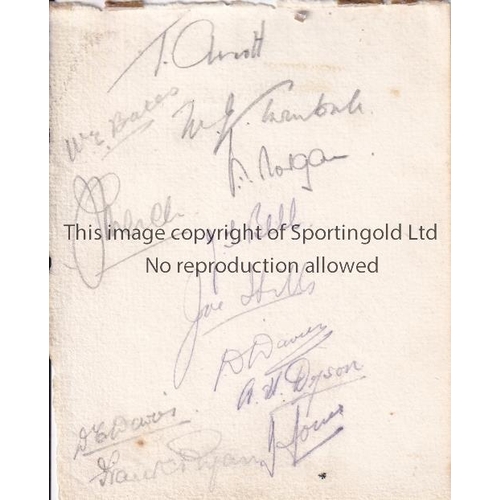 T. Arnott
W.E. Bates
M.J. Turnbull
Morgan
This image copyright of Sportingold Ltd
Bell
No reproduction allowed
Joe Hills
D Davies
A. H. Dyson
D E Davies
Jones
Frank Ryan